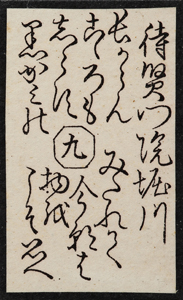 待賢門院堀川
長からん
こゝろも
しらす
黒かみの
九
みたれて
今朝は
物を
こそ思へ